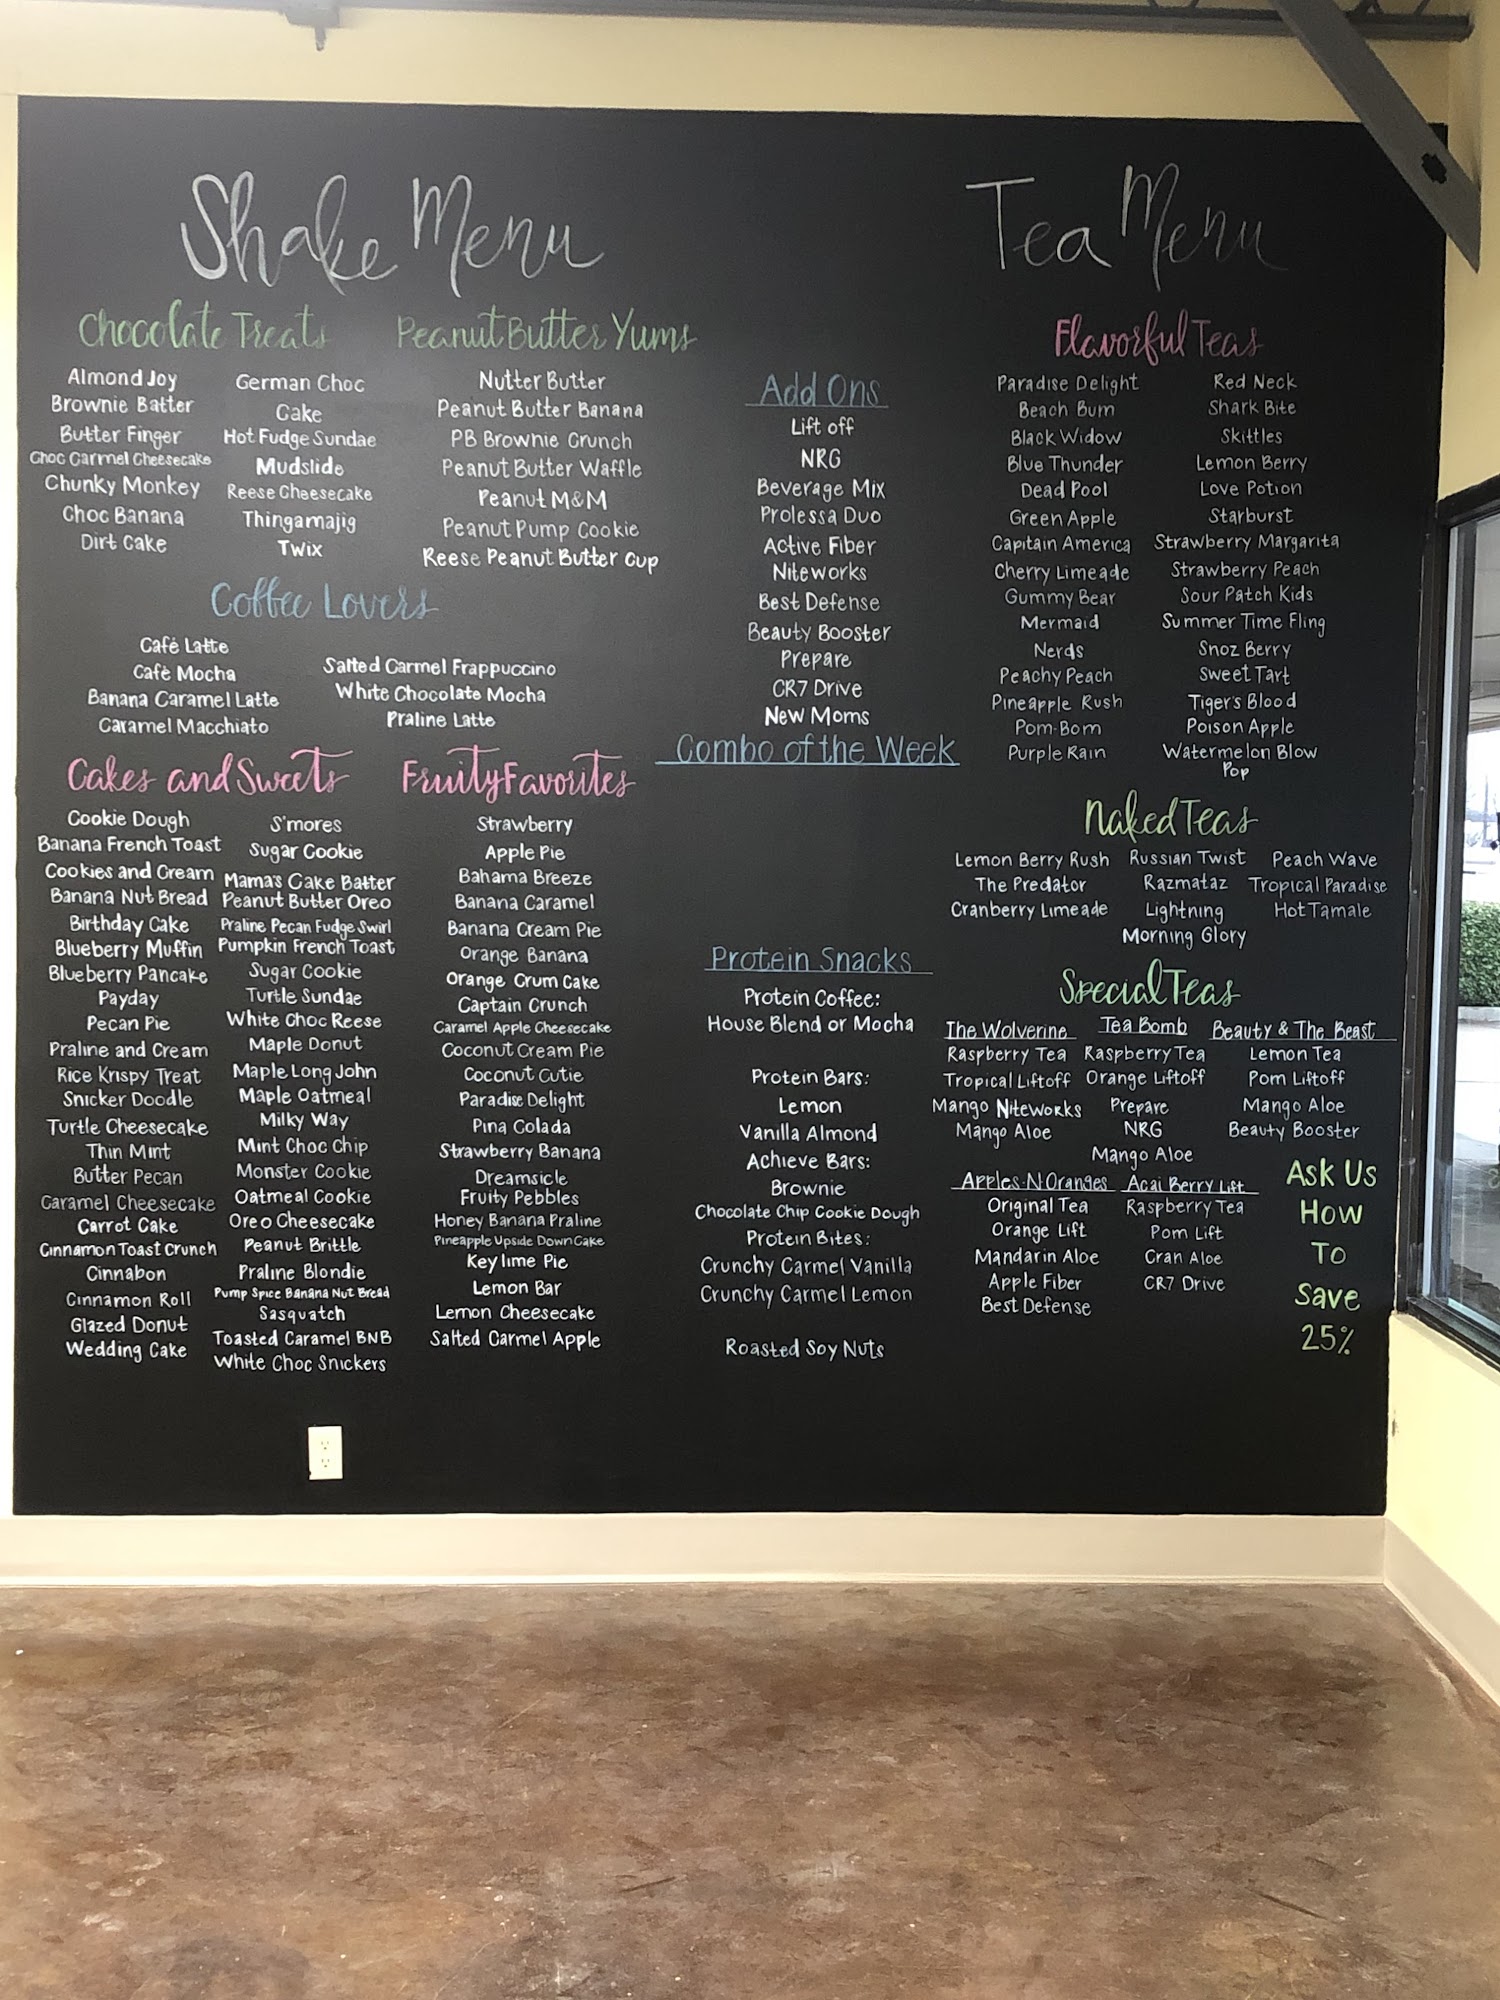 Shake Menu
Chocolate Treats
Almond Joy
Brownie Batter
Butter Finger
Choc Carmel Cheesecake
Chunky Monkey
Choc Banana
Dirt Cake
German Choc
Cake
Hot Fudge Sundae
Mudslide
Reese Cheesecake
Thingamajig
Twix
Peanut Butter Yums
Nutter Butter
Peanut Butter Banana
PB Brownie Crunch
Peanut Butter Waffle
Peanut M&M
Peanut Pump Cookie
Reese Peanut Butter Cup
Coffee Lovers
Café Latte
Cafè Mocha
Banana Caramel Latte
Caramel Macchiato
Salted Carmel Frappuccino
White Chocolate Mocha
Praline Latte
Cakes and Sweets
Cookie Dough
Banana French Toast
Cookies and Cream
Banana Nut Bread
Birthday Cake
Blueberry Muffin
Blueberry Pancake
Payday
Pecan Pie
Praline and Cream
Rice Krispy Treat
Snicker Doodle
Turtle Cheesecake
Thin Mint
Butter Pecan
Caramel Cheesecake
Carrot Cake
Cinnamon Toast Crunch
Cinnabon
Cinnamon Roll
Glazed Donut
Wedding Cake
S'mores
Sugar Cookie
Mama's Cake Batter
Peanut Butter Oreo
Praline Pecan Fudge Swirl
Pumpkin French Toast
Sugar Cookie
Turtle Sundae
White Choc Reese
Maple Donut
Maple Long John
Maple Oatmeal
Milky Way
Mint Choc Chip
Monster Cookie
Oatmeal Cookie
Oreo Cheesecake
Peanut Brittle
Praline Blondie
Pump Spice Banana Nut Bread
Sasquatch
Toasted Caramel BNB
White Choc Snickers
Fruity Favorites
Strawberry
Apple Pie
Bahama Breeze
Banana Caramel
Banana Cream Pie
Orange Banana
Orange Crum Cake
Captain Crunch
Caramel Apple Cheesecake
Coconut Cream Pie
Coconut Cutie
Paradise Delight
Pina Colada
Strawberry Banana
Dreamsicle
Fruity Pebbles
Honey Banana Praline
Pineapple Upside Down Cake
Key lime Pie
Lemon Bar
Lemon Cheesecake
Salted Carmel Apple
Add Ons
Lift off
NRG
Beverage Mix
Prolessa Duo
Active Fiber
Niteworks
Best Defense
Beauty Booster
Prepare
CR7 Drive
New Moms
Combo of the Week
Protein Snacks
Protein Coffee:
House Blend or Mocha
Protein Bars:
Lemon
Vanilla Almond
Achieve Bars:
Brownie
Chocolate Chip Cookie Dough
Protein Bites:
Crunchy Carmel Vanilla
Crunchy Carmel Lemon
Roasted Soy Nuts
Tea Menu
Flavorful Teas
Paradise Delight
Beach Bum
Black Widow
Blue Thunder
Dead Pool
Green Apple
Capitain America
Cherry Limeade
Gummy Bear
Mermaid
Nerds
Peachy Peach
Pineapple Rush
Pom-Bom
Purple Rain
Red Neck
Shark Bite
Skittles
Lemon Berry
Love Potion
Starburst
Strawberry Margarita
Strawberry Peach
Sour Patch Kids
Summer Time Fling
Snoz Berry
Sweet Tart
Tiger's Blood
Poison Apple
Watermelon Blow
Pop
Naked Teas
Lemon Berry Rush
The Predator
Cranberry Limeade
Russian Twist
Razmataz
Lightning
Morning Glory
Peach Wave
Tropical Paradise
Hot Tamale
Special Teas
The Wolverine
Raspberry Tea
Tropical Liftoff
Mango Niteworks
Mango Aloe
Tea Bomb
Raspberry Tea
Orange Liftoff
Prepare
NRG
Mango Aloe
Beauty & The Beast
Lemon Tea
Pom Liftoff
Mango Aloe
Beauty Booster
Apples-N-Oranges
Original Tea
Orange Lift
Mandarin Aloe
Apple Fiber
Best Defense
Acai Berry Lift
Raspberry Tea
Pom Lift
Cran Aloe
CR7 Drive
Ask Us
How
To
Save
25%